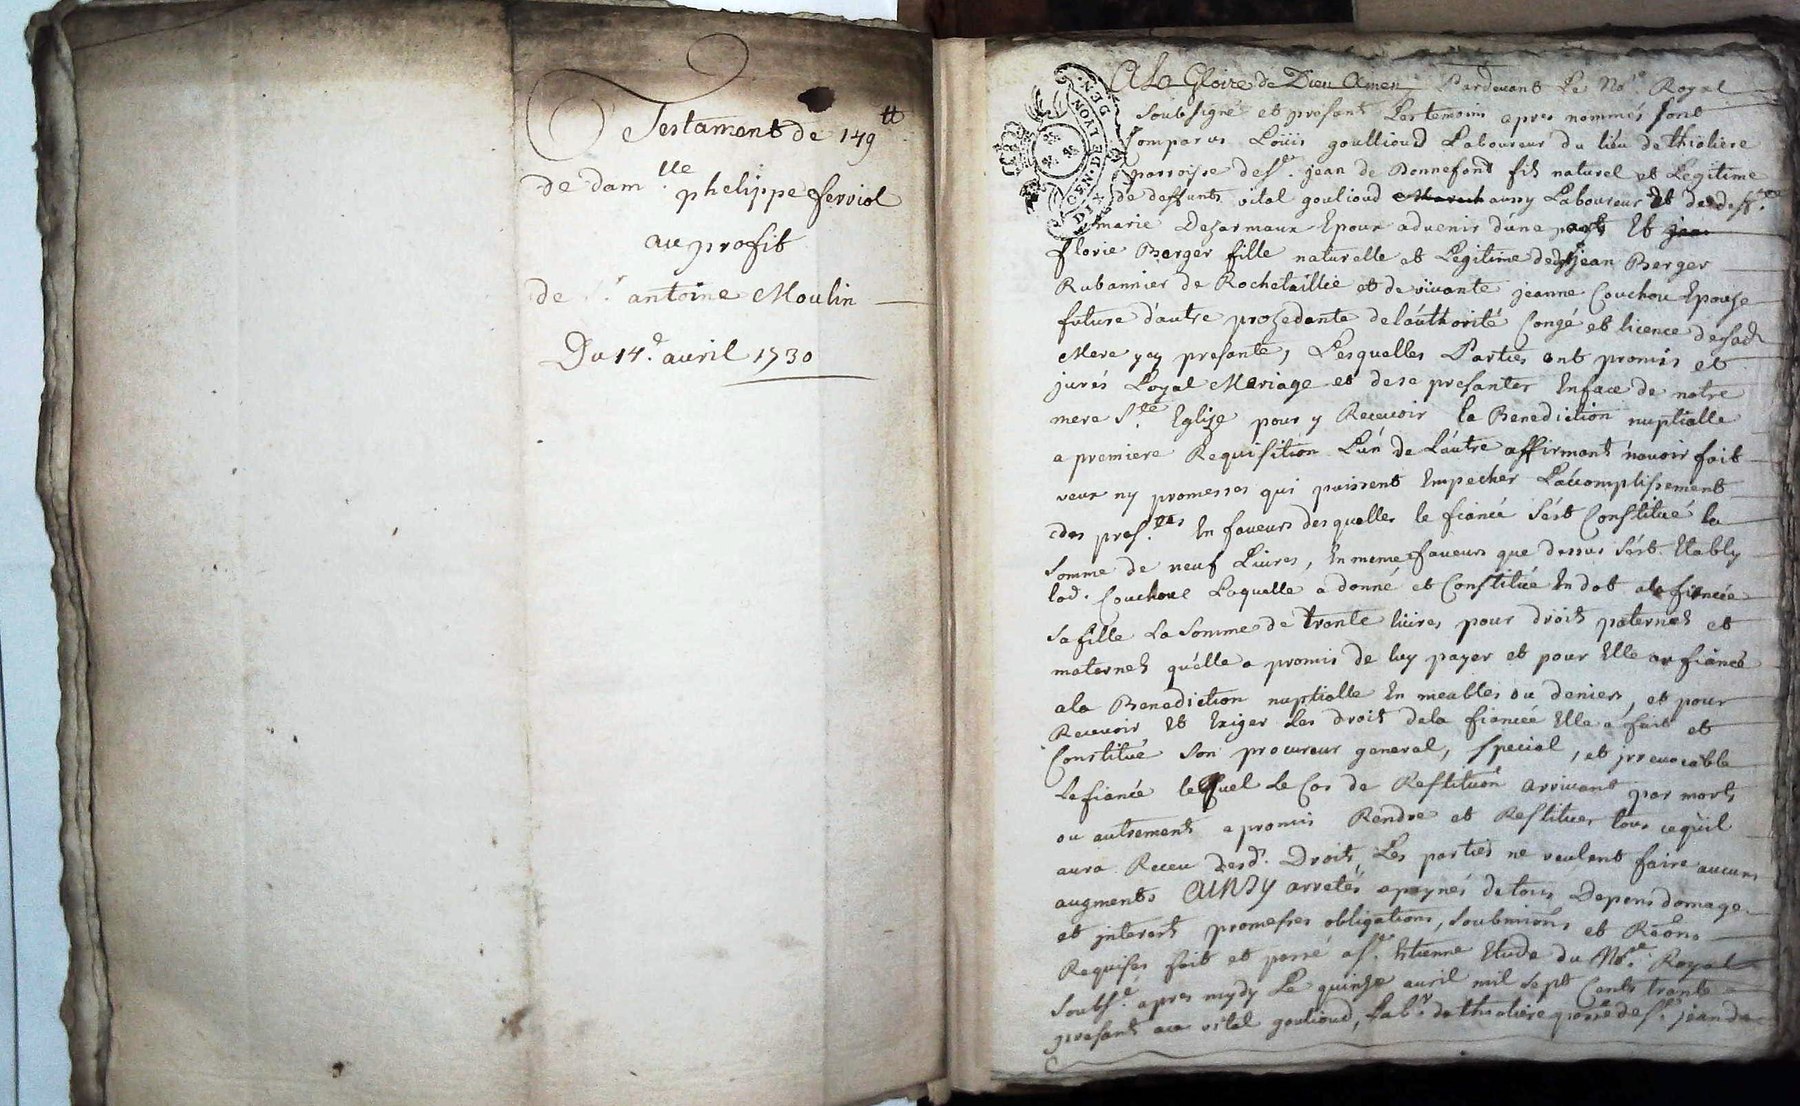 Testament de 149 tt
de dam.lle phelippe serviol
au profit
de Sr. antoine Moulin
Du 14e avril 1730
A La Gloire de Dieu Amen, Pardevant Le No.re Royal
soubsigné et presant Les temoins apres nommés sont
Comparus Loüis goullioud Laboureur du lieu de thiolliere
parroisse de St. jean de Bonnefont fils naturel et Legitime
de deffunts vital goulioud aussy Laboureur et de deff.te
marie Dezarmaux Epoux advenir d'une part Et
florie Berger fille naturelle et Legitime de deft jean Berger
Rubannier de Rochetaillée et de vivante jeanne Couchou Epouse
future d'autre prozedante de l'authorité Congé et licence de sad.
Mere yçy presante, Lesquelles Parties ont promis et
jurés Loyal Mariage et de se presanter En face de notre
mere S.te Eglize pour y Recevoir la Benediction nuptialle
a premiere Requisition L'un de L'autre affirmant n'avoir fait
veux ny promesses qui puissent Empecher L'accomplissement
des pres.tes En faveurs desquelles le fiancé s'est Constitué la
somme de neuf Livres, En meme faveurs que dessus s'est Etably
lad. Couchou Laquelle a donné et Constitué En dot a la fiancée
sa fille La somme de trante livres pour droits paternels et
maternels qu'elle a promis de luy payer et pour Elle au fiancé
a la Benediction nuptialle En meubles ou deniers, et pour
Recevoir Et Exiger Les droits de la fiancée Elle a fait et
Constitué son procureur general, special, et jrrevocable
Le fiancé lequel Le Cas de Restitution arrivant par morts
ou autrement a promis Rendre et Restituer tous ce qu'il
aura Receu desd. Droits, Les parties ne veulent faire aucuns
augments AINSY arretés a peynes de tous Depens domages
et jnterest promesses obligations, soubmissions et Reons
Requises fait et passé a St. Etienne Etude du No.re Royal
soubs.é apres mydy Le quinze avril mil sept Cents trante
presants vital goulioud, Lab.r de thioliere parr.sse de St. jean de